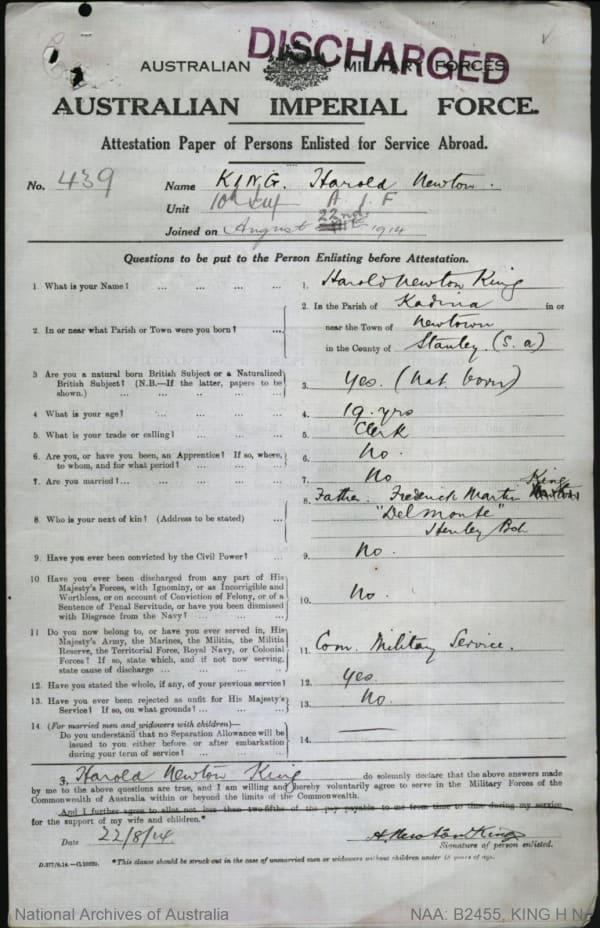 DISCHARGED
AUSTRALIAN MILITARY FORCES
AUSTRALIAN IMPERIAL FORCE.
Attestation Paper of Persons Enlisted for Service Abroad.
No. 439 Name KING. Harold Newton.
Unit 10th A I F
Joined on August 22nd 1914
Questions to be put to the Person Enlisting before Attestation.
1. What is your Name? ... ... ... ... 1. Harold Newton King
2. In or near what Parish or Town were you born? ... 2. In the Parish of Kadina in or
near the Town of Newtown
in the County of Stanley. (S. a)
3. Are you a natural born British Subject or a Naturalized
British Subject? (N.B.—If the latter, papers to be
shown.) ... ... ... ... ... 3. Yes. (Nat born)
4. What is your age? ... ... ... ... 4. 19. yrs
5. What is your trade or calling? ... ... ... 5. Clerk
6. Are you, or have you been, an Apprentice? If so, where,
to whom, and for what period? ... ... ... 6. No.
7. Are you married? ... ... ... ... ... 7. No
8. Who is your next of kin? (Address to be stated) ... 8. Father. Frederick Martin King
"Delmonte"
Henley Bch
9. Have you ever been convicted by the Civil Power? ... 9. No.
10. Have you ever been discharged from any part of His
Majesty's Forces, with Ignominy, or as Incorrigible and
Worthless, or on account of Conviction of Felony, or of a
Sentence of Penal Servitude, or have you been dismissed
with Disgrace from the Navy? ... ... ... 10. No.
11 Do you now belong to, or have you ever served in, His
Majesty's Army, the Marines, the Militia, the Militia
Reserve, the Territorial Force, Royal Navy, or Colonial
Forces? If so, state which, and if not now serving,
state cause of discharge ... ... ... ... 11. Com. Military Service.
12. Have you stated the whole, if any, of your previous service? 12. Yes
13. Have you ever been rejected as unfit for His Majesty's
Service? If so, on what grounds? ... ... ... 13. No.
14. (For married men and widowers with children)—
Do you understand that no Separation Allowance will be
issued to you either before or after embarkation
during your term of service? ... ... ... 14. —
I, Harold Newton King do solemnly declare that the above answers made
by me to the above questions are true, and I am willing and hereby voluntarily agree to serve in the Military Forces of the
Commonwealth of Australia within or beyond the limits of the Commonwealth.
And I further agree to allot not less than two-fifths of the pay payable to me from time to time during my service
for the support of my wife and children.*
Date 22/8/14 H. Newton King
Signature of person enlisted.
*This clause should be struck out in the case of unmarried men or widowers without children under 18 years of age.
National Archives of Australia NAA: B2455, KING H N